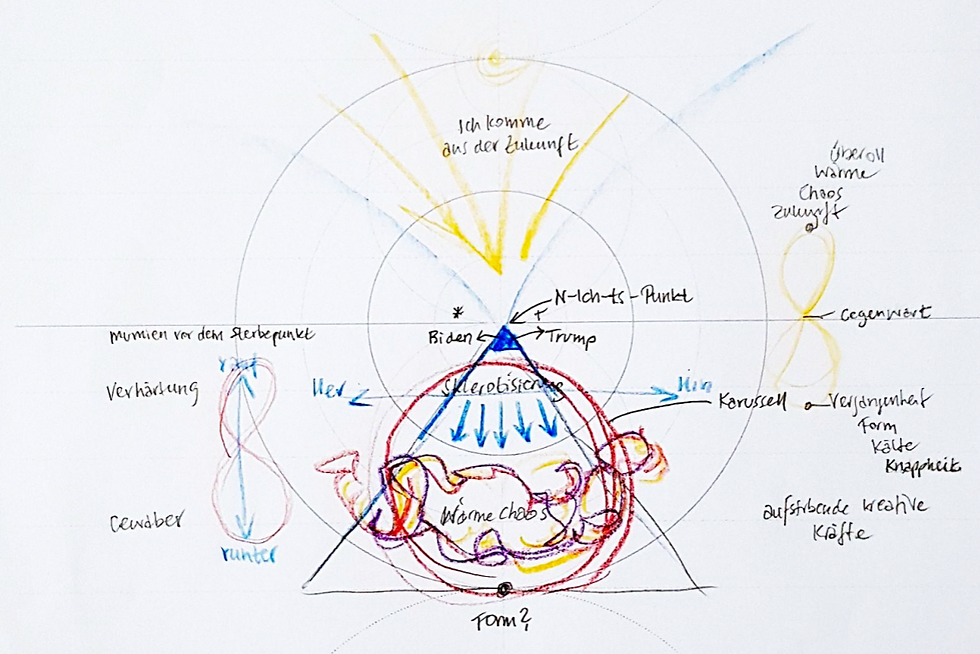 Ich komme
aus der Zukunft
Überall
Wärme
Chaos
Zukunft
N-Ich-ts-Punkt
*
+
Gegenwart
Mumien vor dem Sterbepunkt
Biden
Trump
rauf
Verhärtung
Her
Sklerotisierung
Hin
Karussell
Vergangenheit
Form
Kälte
Knappheit
Wärme Chaos
aufstrbende kreative
Kräfte
runter
Form?